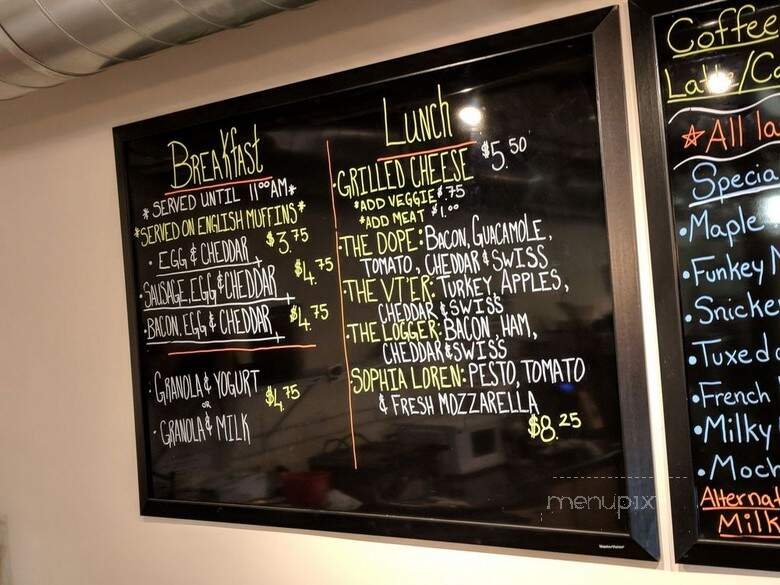 Breakfast
* SERVED UNTIL 11:00 AM *
*SERVED ON ENGLISH MUFFINS*
• EGG & CHEDDAR $3.75
• SAUSAGE, EGG & CHEDDAR $4.75
• BACON, EGG & CHEDDAR $4.75
• GRANOLA & YOGURT $4.75
OR
• GRANOLA & MILK
Lunch
• GRILLED CHEESE $5.50
*ADD VEGGIE $.75
*ADD MEAT $1.00
• THE DOPE: BACON, GUACAMOLE,
TOMATO, CHEDDAR & SWISS
• THE VT'ER: TURKEY, APPLES,
CHEDDAR & SWISS
• THE LOGGER: BACON, HAM,
CHEDDAR & SWISS
SOPHIA LOREN: PESTO, TOMATO
& FRESH MOZZARELLA
$8.25
Coffee
All la
Specia
• Maple
• Funkey
• Snicke
• Tuxed
• French
• Milky
• Moch
Alterna
Milk
menupix